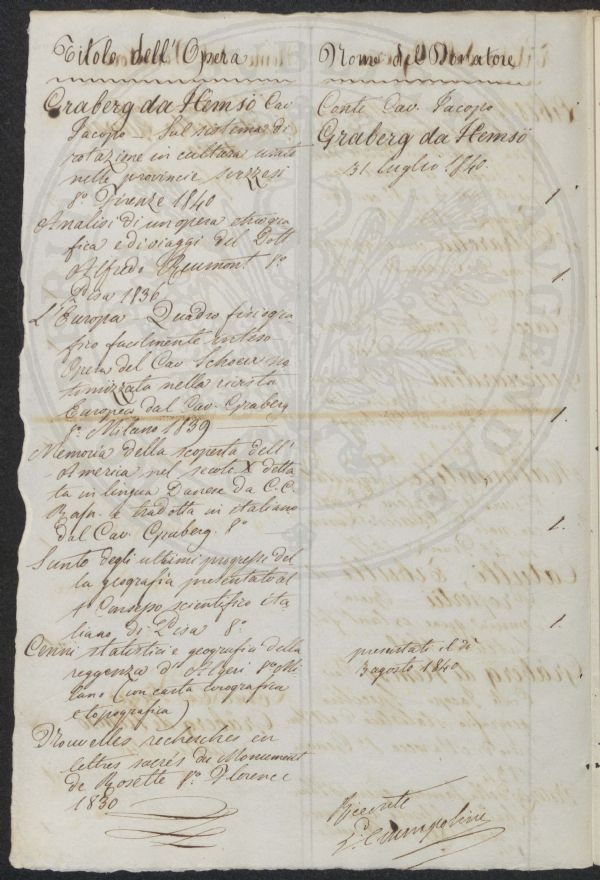 Titolo dell' Opera
Nome del Donatore
Graberg da Hemsö Cav
Jacopo Sul sistema di
rotazione in cultura usato
nelle provincie svezesi
8º Firenze 1840
Analisi di un opera etnogra
fica e di viaggi del Dott
Alfredo Reumont 8º
Pisa 1836
L'Europa Quadro fisiogra
fico facilmente inteso
Opera del Cav Schouw
nella rivista
Europea dal Cav. Graberg
8º Milano 1839
Memoria della scoperta dell'
America nel secolo X detta
ta in lingua Danese da C.C.
Rafn e tradotta in italiano
dal Cav Graberg 8º
Sunto degli ultimi progressi del
la geografia presentato al
1º Congresso scientifico ita
liano di Pisa 8º
Cenni statistici e geografici della
reggenza d'Algeri 8º Mi
lano (con carta corografica
e topografica)
Nouvelles recherches en
lettres sacrés du Monument
de Rosette 8º Florence
1830
Conte Cav. Jacopo
Graberg da Hemsö
31 luglio 1840.
1.
1.
1.
1.
1.
presentati il dì
3 agosto 1840
Ricevute
Ciampolini